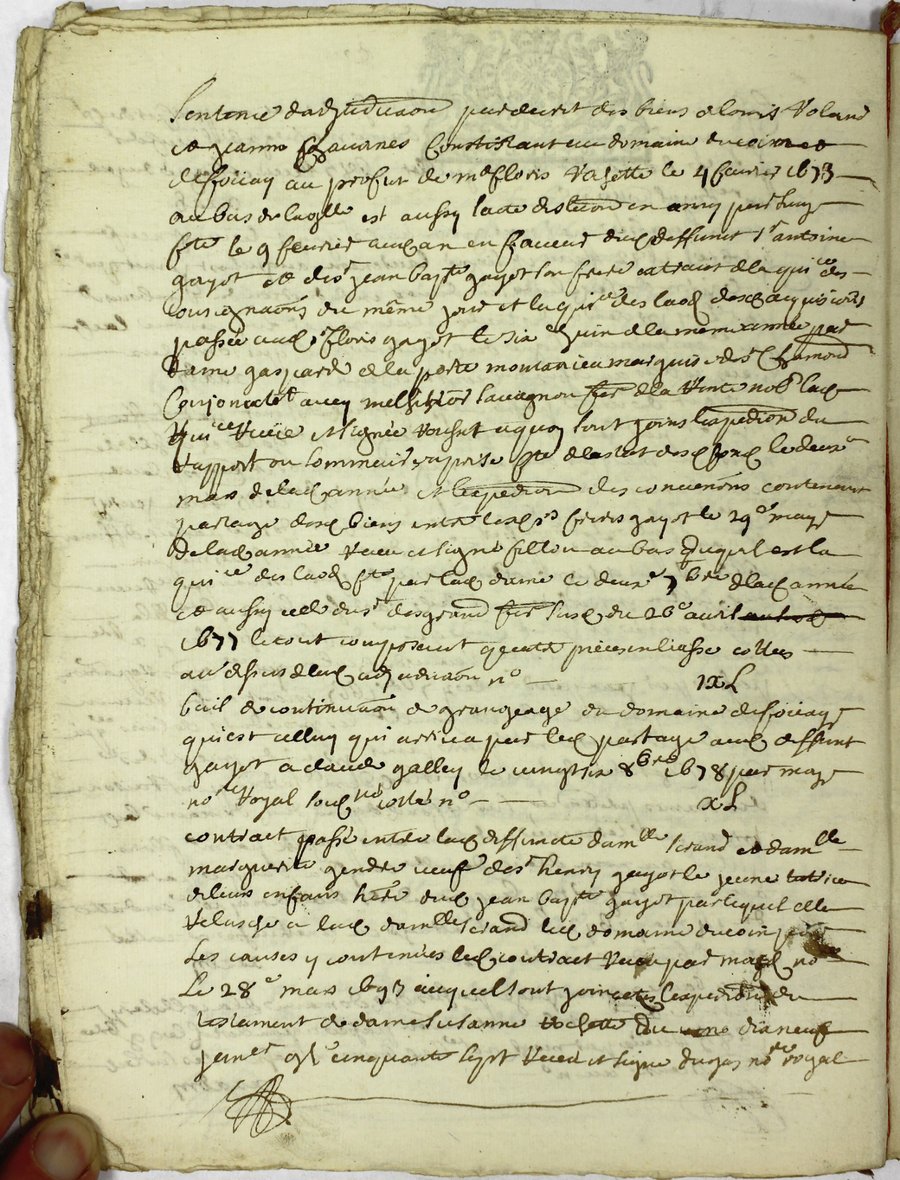 Sentence dadjudicaon par decret des biens de louis Voland
et Jeanne Chavanes Consistant au domaine du coin et
de foüay au profit de Me floris Valette le 4 fevrier 1673
au bas de laqlle est aussy lacte deslection en amy par
fte le 9 fevrier aud an en faveur dud deffunct sr antoine
gayot et de sr jean bapte gayot son frere extraict de la quice des
consignaons du même jour et la quice des laod desd acquisions
passée aud sr floris gayot le six juin de la meme année par
dame gaspard de la porte montanieu marquise de st Chamond
Conjonctet avec melchior savagnon fer de la Vente no laq
quice Veüe et signée a quoy sont joins lexpedion du
rapport ou sommaire apprise fte de lestat desd fond le deuxe
mars de lad année et lexpedion des convenons contenant
partage desd biens entre lesd srs freres gayot le 29e may
de lad année Veue et signé fillon au bas duquel est la
quice des laod fte par lad dame le deuxe 7bre de lad année
et aussy celle du sr desgrand fer susd du 26e avril
1677 le tout composant quatre pieces en liasse cottées
au dessus de lad adjudicaon no IXL
bail de continuaon de grangeage du domaine de foüay
qui est celluy qui arriva par led partage aud deffunt
gayot a claude galley le vingt six 8bre 1678 par may
nore Royal soud né cotté no XL
contract passé entre lad deffuncte damlle ferand et damlle
marguerite gendre veufe de sr henry gayot le jeune tutrice
de leurs enfans here dud jean bapte gayot par lequel elle
relasche a lad damlle ferand led domaine du coin pour
Les causes y contenües led contract Veue par mad nore
Le 28e mars 1693 auquel sont joinctes lexpedion du
testament de dame susanne du dixneuf
janer gbt cinquante sept Veüe et signe dujas nore royal